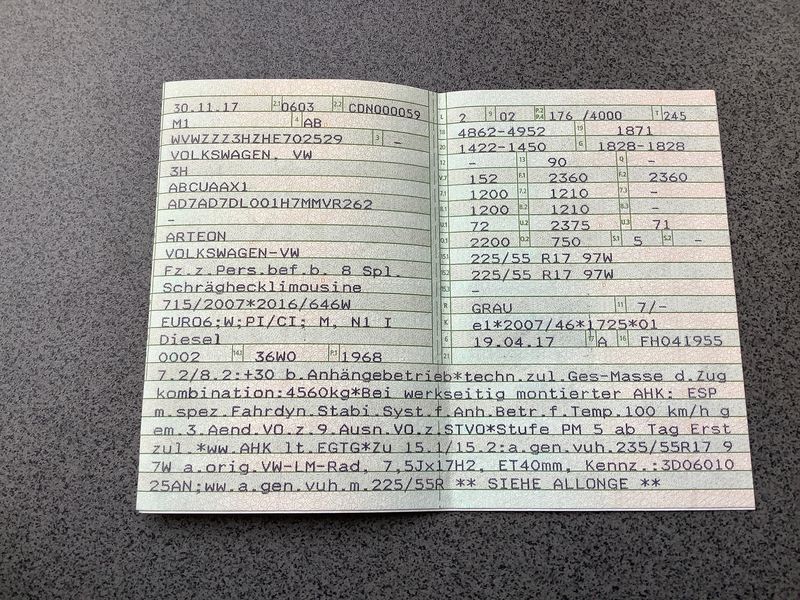 30.11.17 2.1 0603 2.2 CDN000059
M1 4 AB
WVWZZZ3HZHE702529 3 –
VOLKSWAGEN, VW
3H
ABCUAAX1
AD7AD7DL001H7MMVR262
–
ARTEON
VOLKSWAGEN-VW
Fz.z.Pers.bef.b. 8 Spl.
Schräghecklimousine
715/2007*2016/646W
EURO6;W;PI/CI; M, N1 I
Diesel
0002 14.1 36W0 P.1 1968
L 2 9 02 P.2 P.4 176 /4000 T 245
18 4862-4952 19 1871
20 1422-1450 G 1828-1828
12 – 13 90 Q –
V.7 152 F.1 2360 F.2 2360
7.1 1200 7.2 1210 7.3 –
8.1 1200 8.2 1210 8.3 –
U.1 72 U.2 2375 U.3 71
O.1 2200 O.2 750 S.1 5 S.2 –
15.1 225/55 R17 97W
15.2 225/55 R17 97W
15.3 –
R GRAU 11 7/–
K e1*2007/46*1725*01
6 19.04.17 17 A 16 FH041955
21
7.2/8.2:+30 b.Anhängebetrieb*techn.zul.Ges-Masse d.Zug
kombination:4560kg*Bei werkseitig montierter AHK: ESP
m.spez.Fahrdyn.Stabi.Syst.f.Anh.Betr.f.Temp.100 km/h g
em.3.Aend.VO.z.9.Ausn.VO.z.STVO*Stufe PM 5 ab Tag Erst
zul.*ww.AHK lt.EGTG*Zu 15.1/15.2:a.gen.vuh.235/55R17 9
7W a.orig.VW-LM-Rad, 7,5Jx17H2, ET40mm, Kennz.:3D06010
25AN;ww.a.gen.vuh.m.225/55R ** SIEHE ALLONGE **